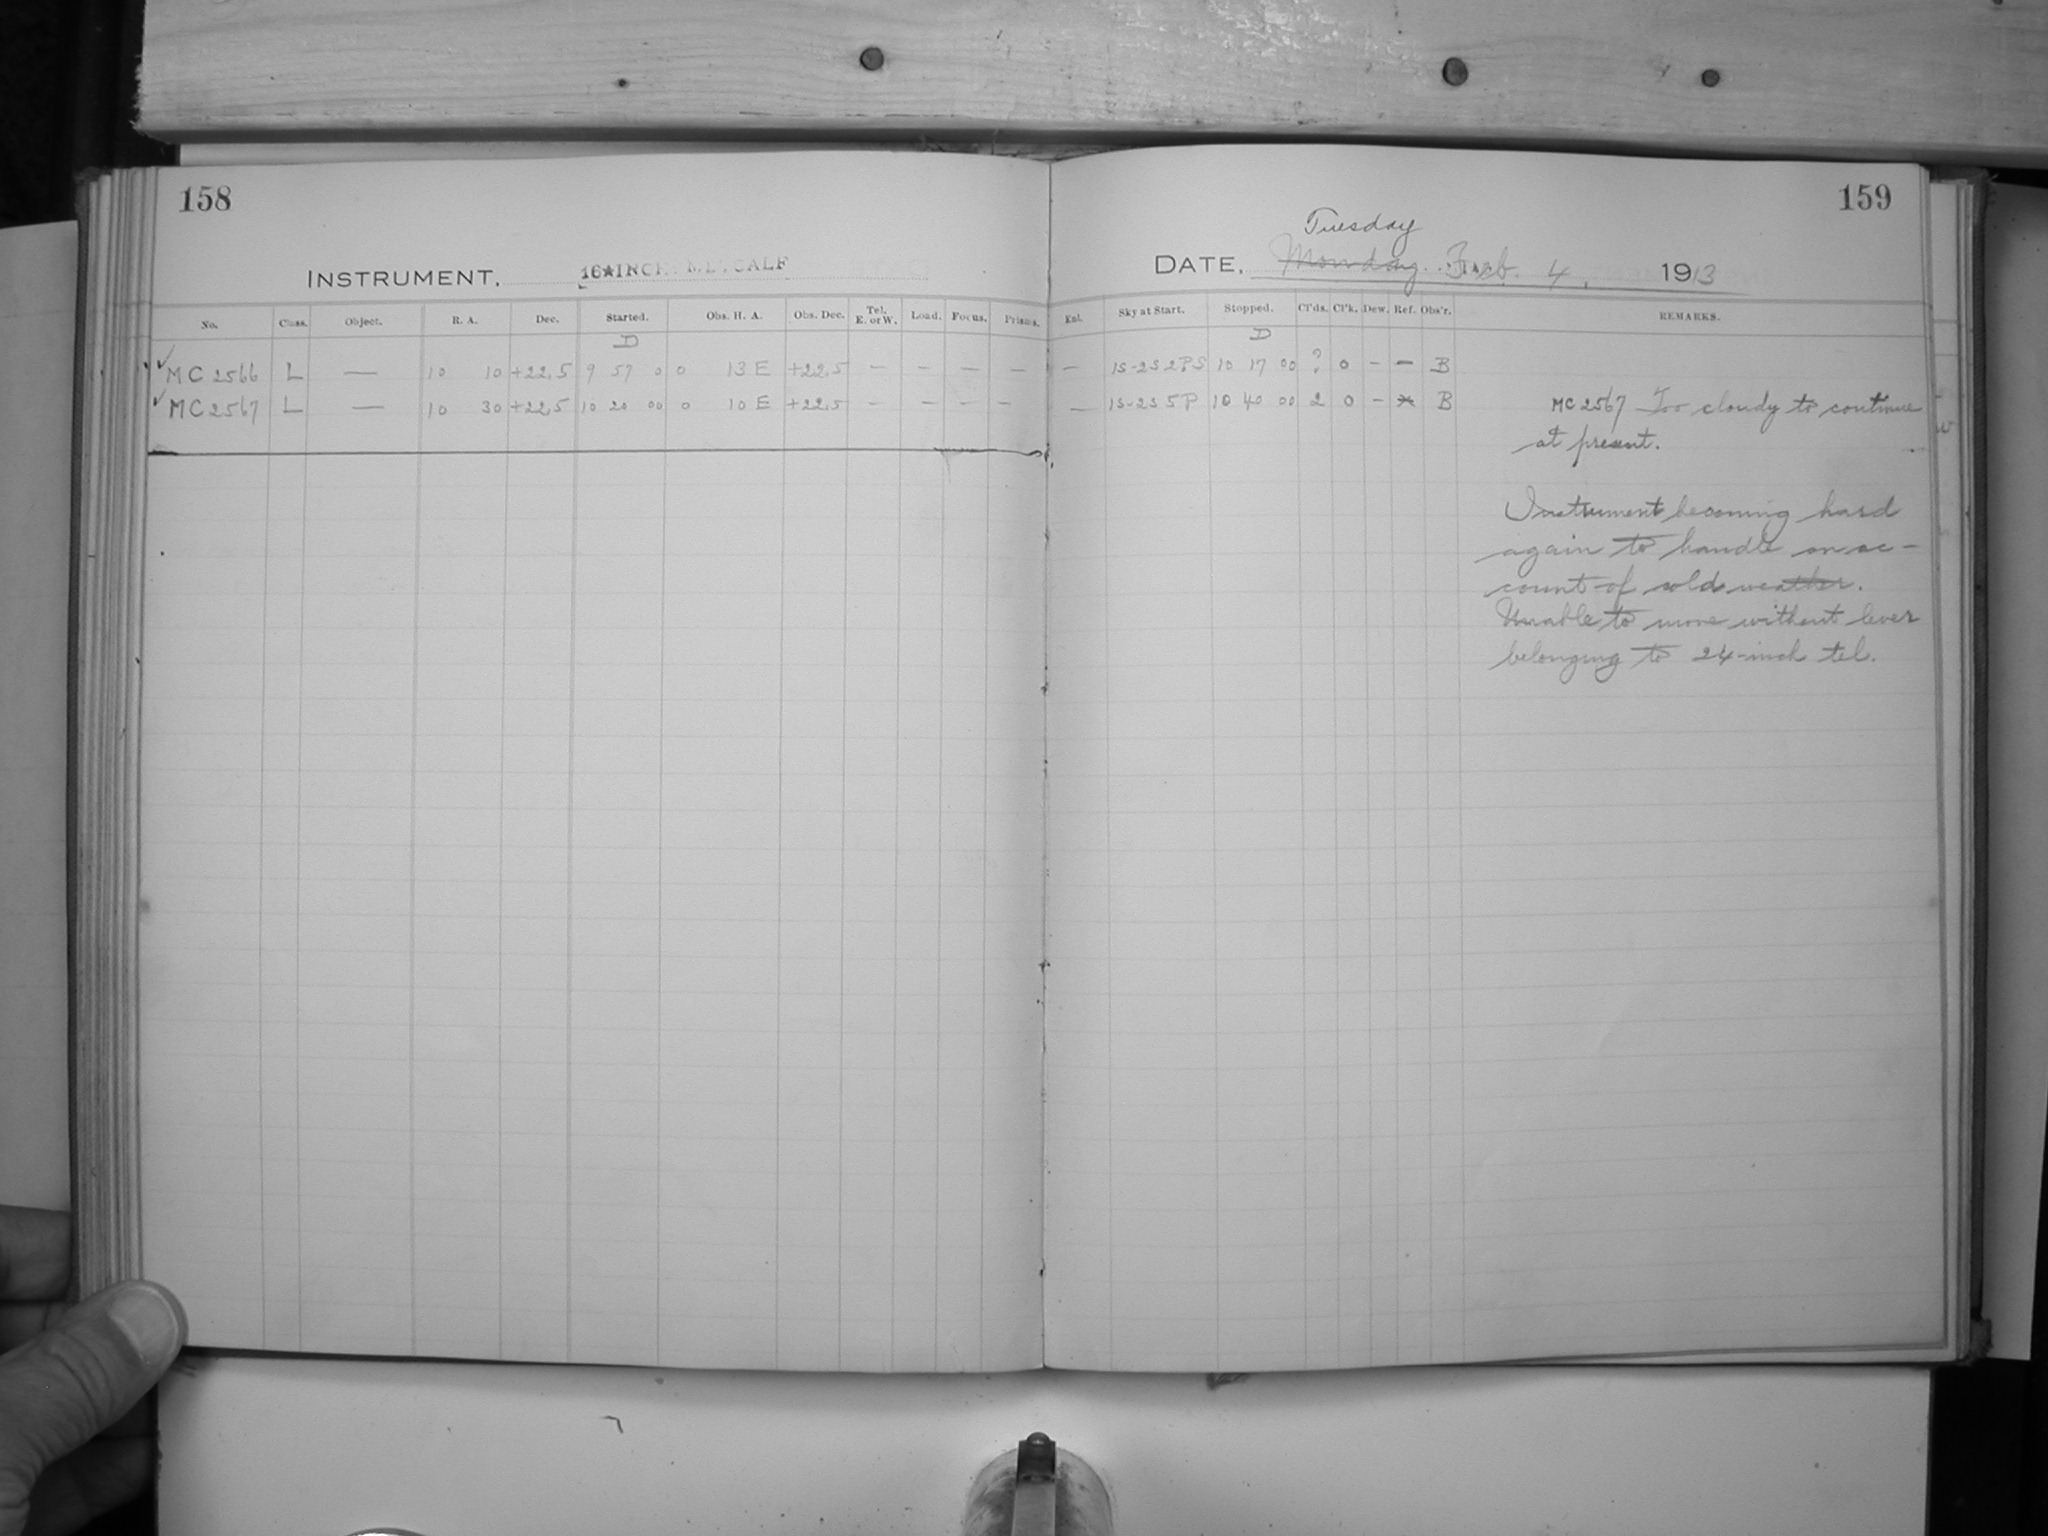 158
INSTRUMENT, 16★INCH METCALF
No. Class. Object. R. A. Dec. Started. Obs. H. A. Obs. Dec. Tel. E. or W. Load. Focus. Prisms.
D
✓ MC 2566 L — 10 10 +22.5 9 57 00 0 13 E +22.5 — — — —
✓ MC 2567 L — 10 30 +22.5 10 20 00 0 10 E +22.5 — — — —
159
Tuesday
DATE, Monday. Feb. 4, 1913
Enl. Sky at Start. Stopped. Cl'ds. Cl'k. Dew. Ref. Obs'r. REMARKS.
D
— 1S-2S 2PS 10 17 00 ? 0 – – B
— 1S-2S 5P 10 40 00 2 0 – B
MC 2567 Too cloudy to continue
at present.
Instrument becoming hard
again to handle on ac-
count of cold weather.
Unable to move without lever
belonging to 24-inch tel.